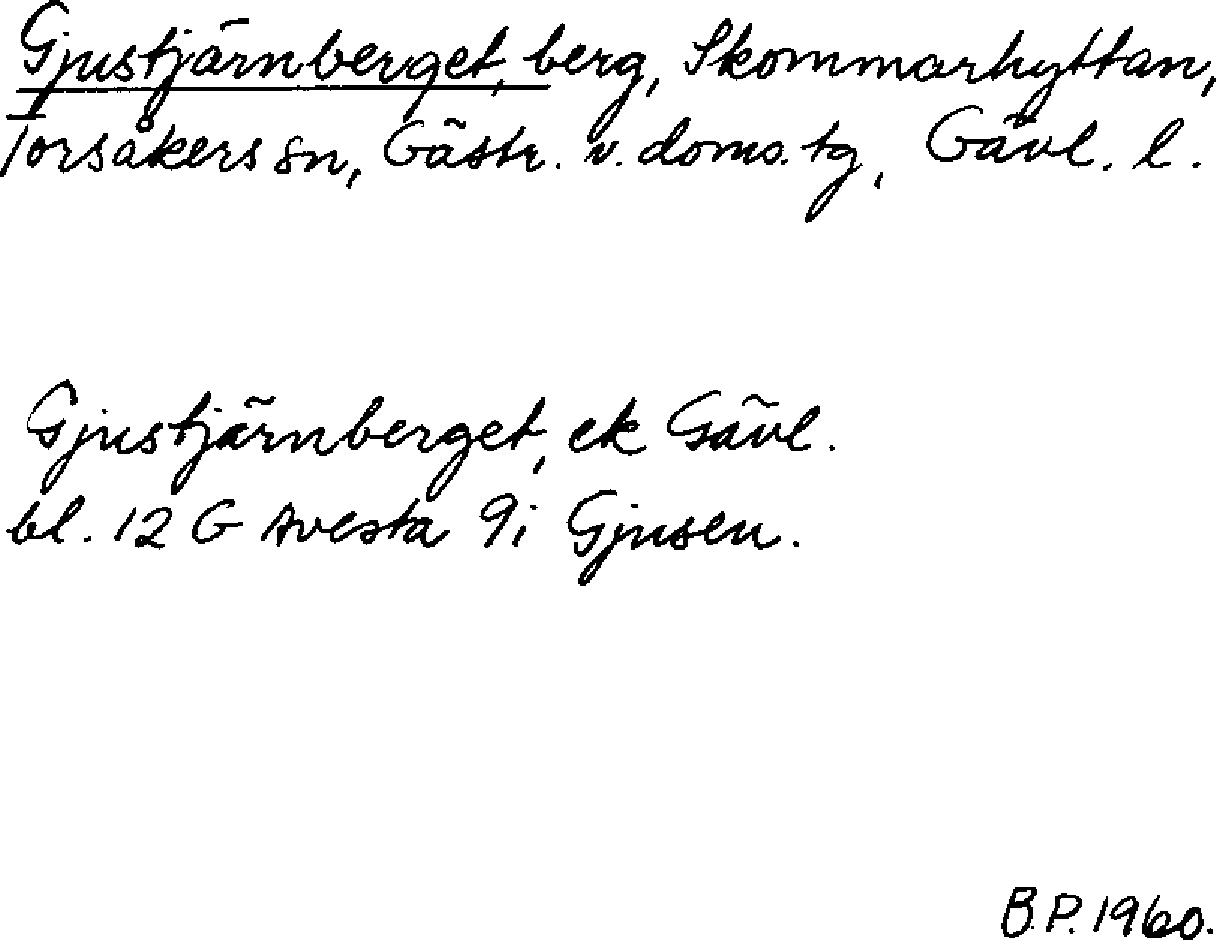 Gjustjärnberget, berg, Skommarhyttan,
Torsåkers sn, Gästr. v. doms. tg, Gävl. l.
Gjustjärnberget, ek Gävl.
bl. 12 G Avesta 9i Gjusen.
B.P. 1960.